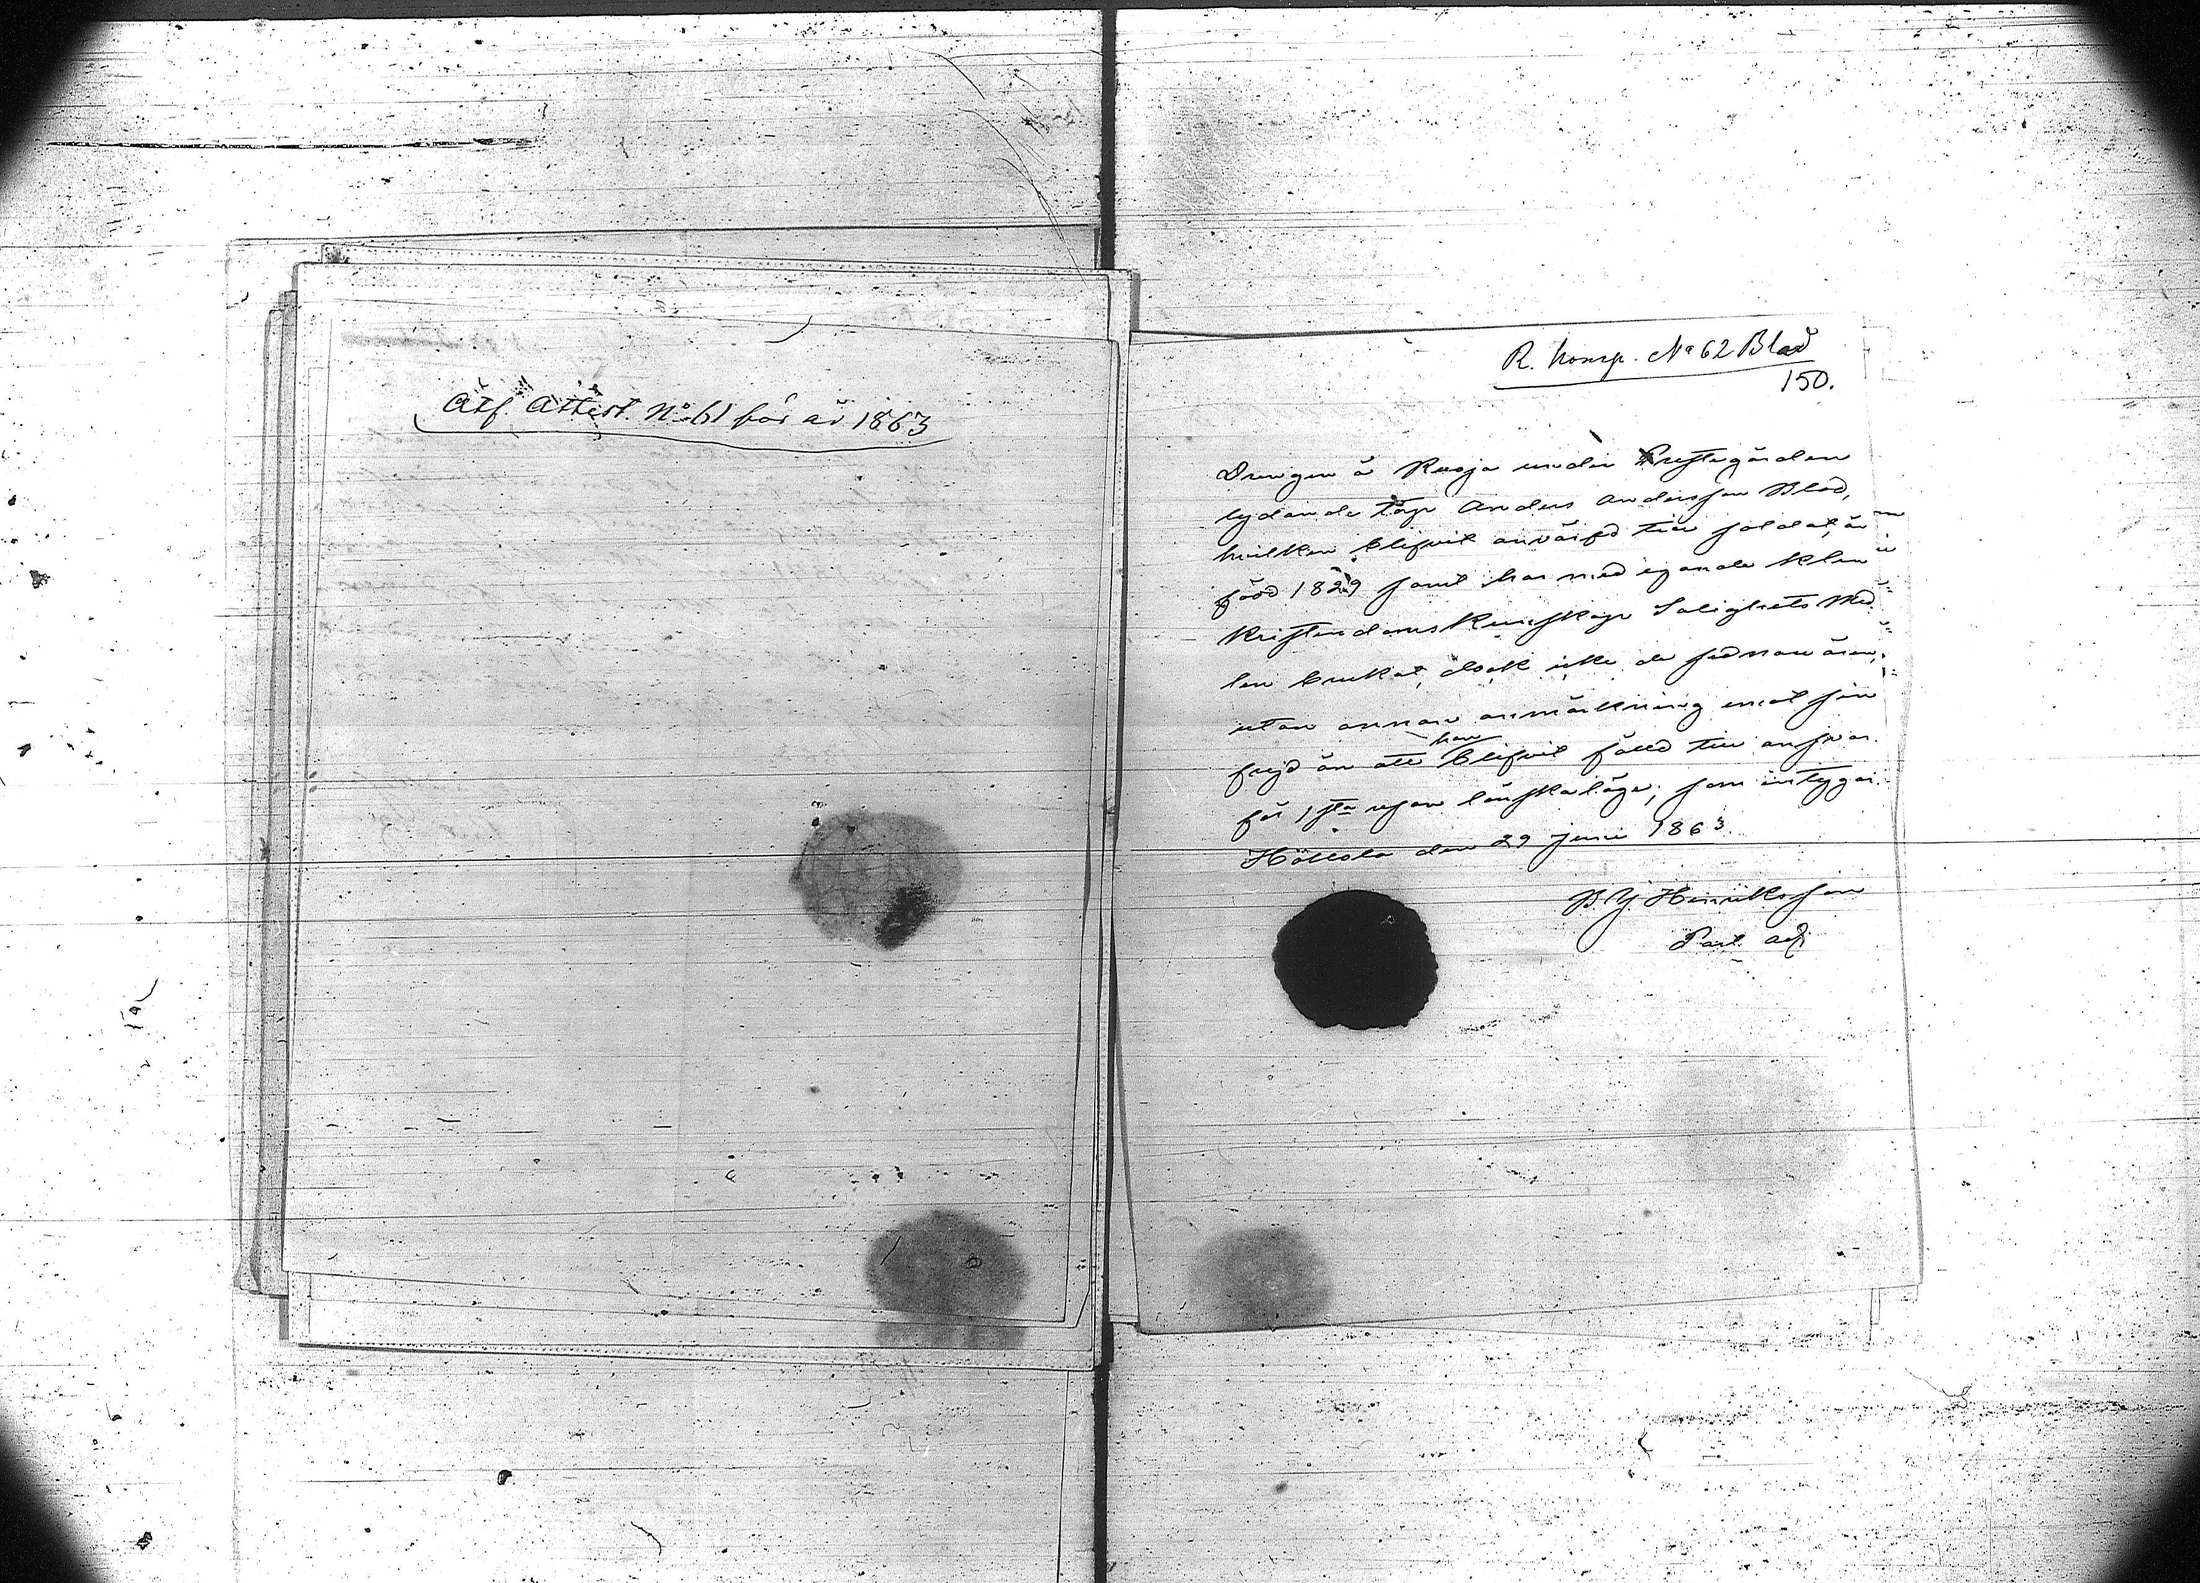 Att. Attest. No 61 för år 1863
R. komp. No 62 Blad
150.
Drengen å Ruoja under Prestegården
lydande torp Anders Andersson Blad,
hvilken blifvit anvärfd till soldat, är
född 1829 samt har med egande klen
Kristendomskunskap Salighets Med
len brukat, dock icke de sednare åren,
utan annan anmärkning emot sin
frejd än att han blifvit fälld till ansvar
för 1sta resan lönskaläge; som intygar.
Hollola den 29 Juni 1863.
Henriksson
Past. adj.